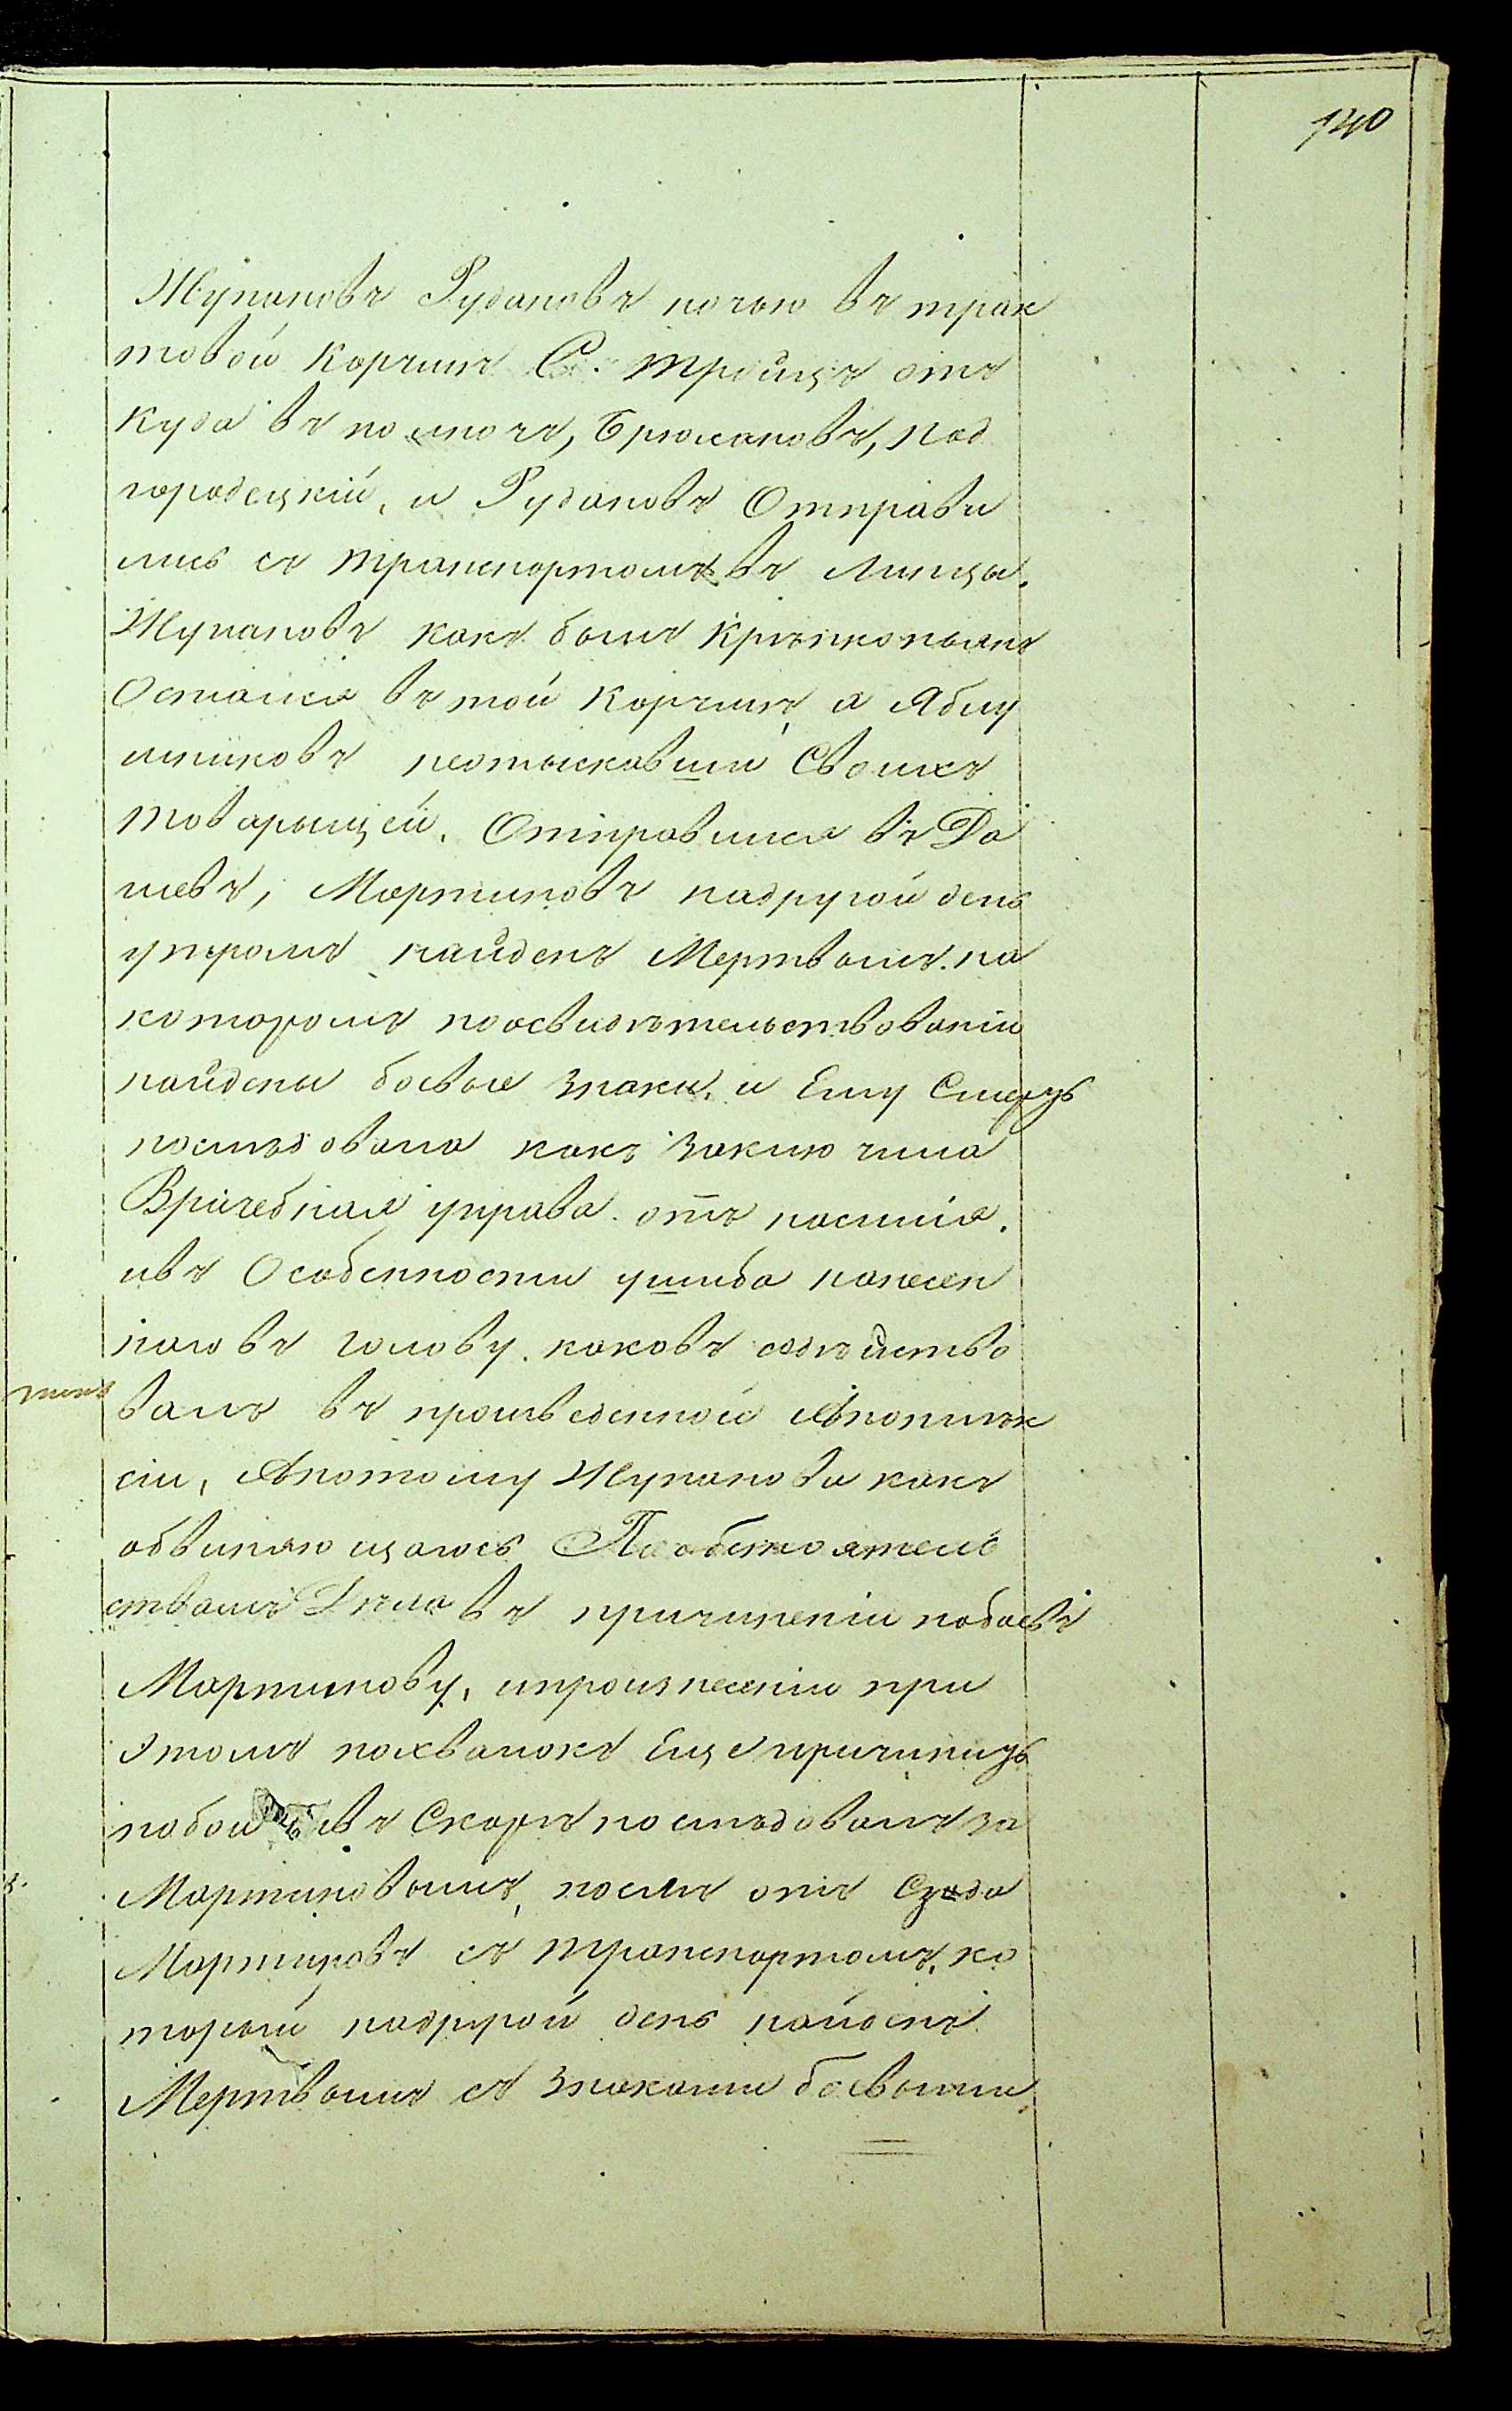 140
Жупановъ Рудановъ ночью въ трак
товой корчмѣ С. Тройцѣ отъ
куда въ полночѣ, Брюхановъ, Под
городецкій, и Рудановъ Отправи
лись съ транспортомъ въ Линцы.
Жупановъ какъ былъ крѣпкопьянъ
Остался въ той Корчмѣ, а Яблу
шниковъ неотыскавши Своихъ
товарыщей, Отправился въ Да
шевъ, Мартиновъ надругой день
утромъ найденъ Мертвымъ. на
которомъ поосвидѣтельствованіи
найдены боевые знаки, и Ему Смерть
послѣдовала какъ заключила
Врачебная управа. отъ насилія.
ивъ Особенности ушиба нанесен
наго въ голову. каковъ содѣйство
валъ въ произведенной Апоплѣк
сіи, Апотому Жупанова какъ
обвиняющагось По обстоятель
ствамъ Дѣла въ причиненіи побоевъ
Мартинову, ипроизнесеніи при
этомъ похвалокъ Еще причинить
побои ивъ Скорѣ послѣдовалъ за
Мартиновымъ, послѣ отъ Сзада
Мартиновъ съ транспортомъ, ко
торый надругой день найденъ
Мертвымъ съ знаками боевыми,